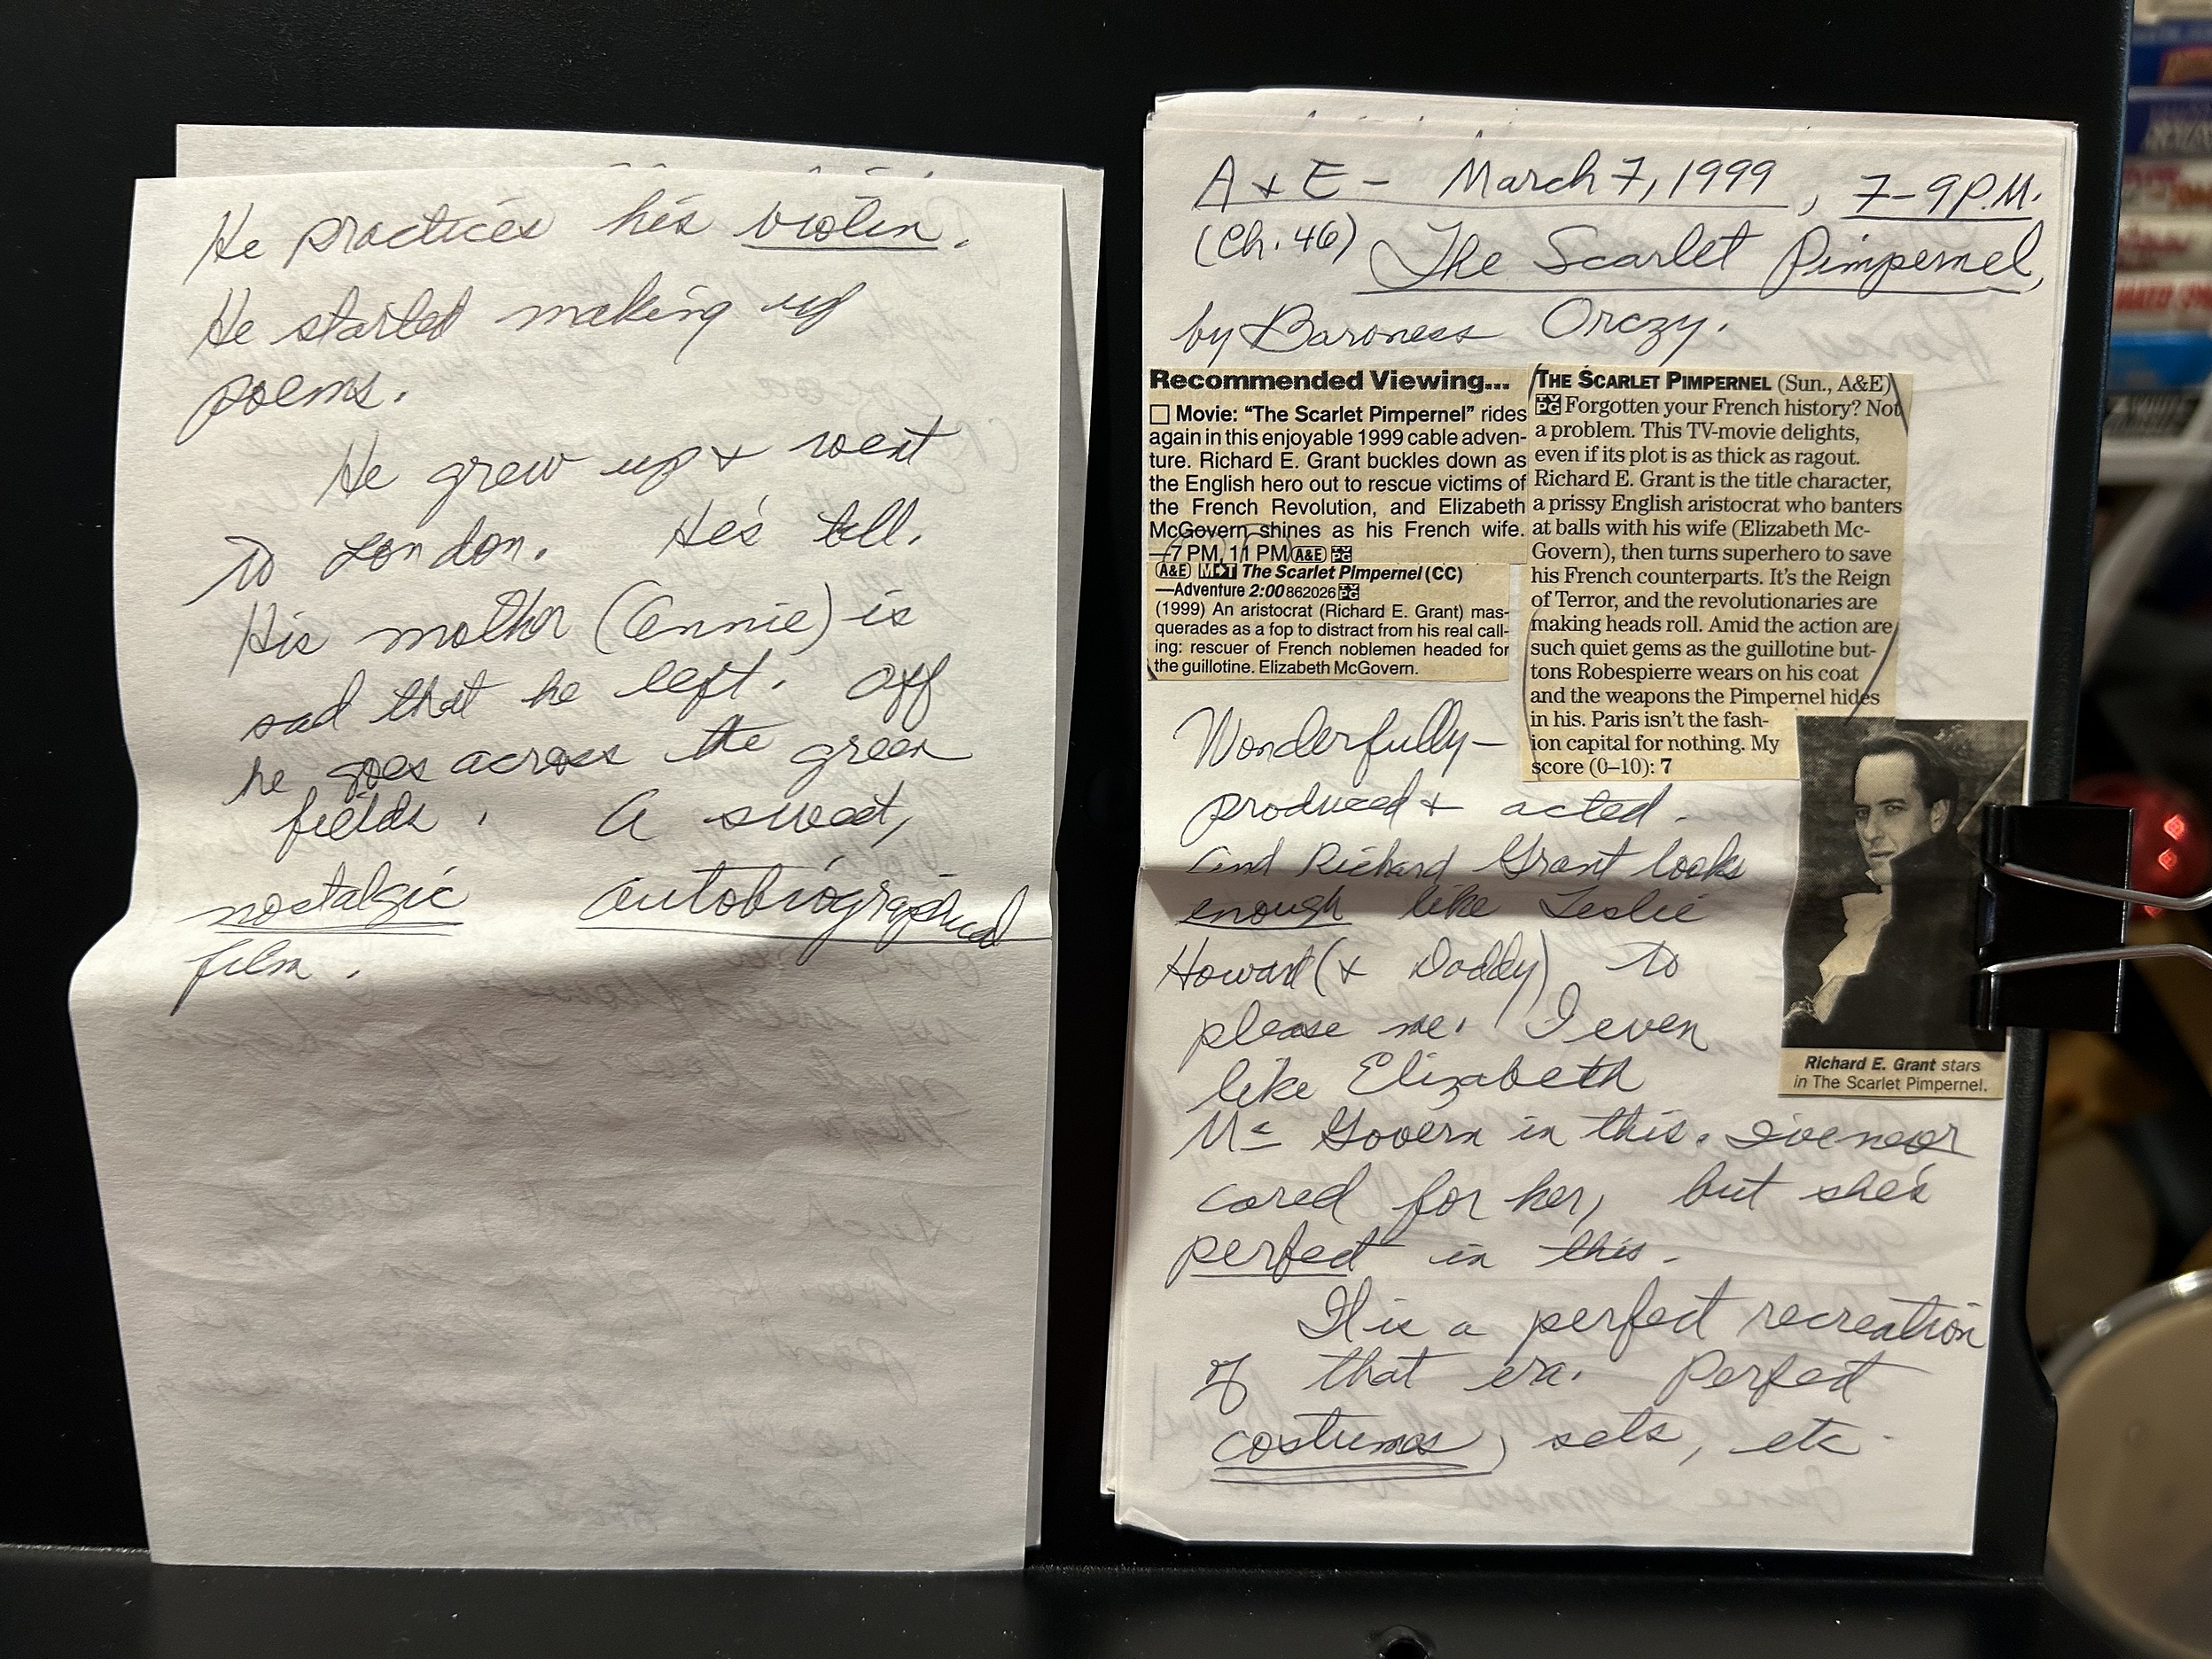 He practices his violin.
He started making up
poems.
He grew up & went
to London. He's tall.
His mother (Annie) is
sad that he left. Off
he goes across the green
fields. A sweet,
nostalgic autobiographical
film.
A & E - March 7, 1999, 7-9 P.M.
(Ch. 46) The Scarlet Pimpernel,
by Baroness Orczy.
Recommended Viewing...
Movie: "The Scarlet Pimpernel" rides
again in this enjoyable 1999 cable adven-
ture. Richard E. Grant buckles down as
the English hero out to rescue victims of
the French Revolution, and Elizabeth
McGovern shines as his French wife.
—7 PM, 11 PM A&E TV PG
A&E M➔T The Scarlet Pimpernel (CC)
—Adventure 2:00 862026 TV PG
(1999) An aristocrat (Richard E. Grant) mas-
querades as a fop to distract from his real call-
ing: rescuer of French noblemen headed for
the guillotine. Elizabeth McGovern.
THE SCARLET PIMPERNEL (Sun., A&E)
TV PG Forgotten your French history? Not
a problem. This TV-movie delights,
even if its plot is as thick as ragout.
Richard E. Grant is the title character,
a prissy English aristocrat who banters
at balls with his wife (Elizabeth Mc-
Govern), then turns superhero to save
his French counterparts. It's the Reign
of Terror, and the revolutionaries are
making heads roll. Amid the action are
such quiet gems as the guillotine but-
tons Robespierre wears on his coat
and the weapons the Pimpernel hides
in his. Paris isn't the fash-
ion capital for nothing. My
score (0–10): 7
Richard E. Grant stars
in The Scarlet Pimpernel.
Wonderfully-
produced & acted.
And Richard Grant looks
enough like Leslie
Howard (& Daddy) to
please me. I even
like Elizabeth
Mc Govern in this. I've never
cared for her, but she's
perfect in this.
It is a perfect recreation
of that era. Perfect
costumes, sets, etc.